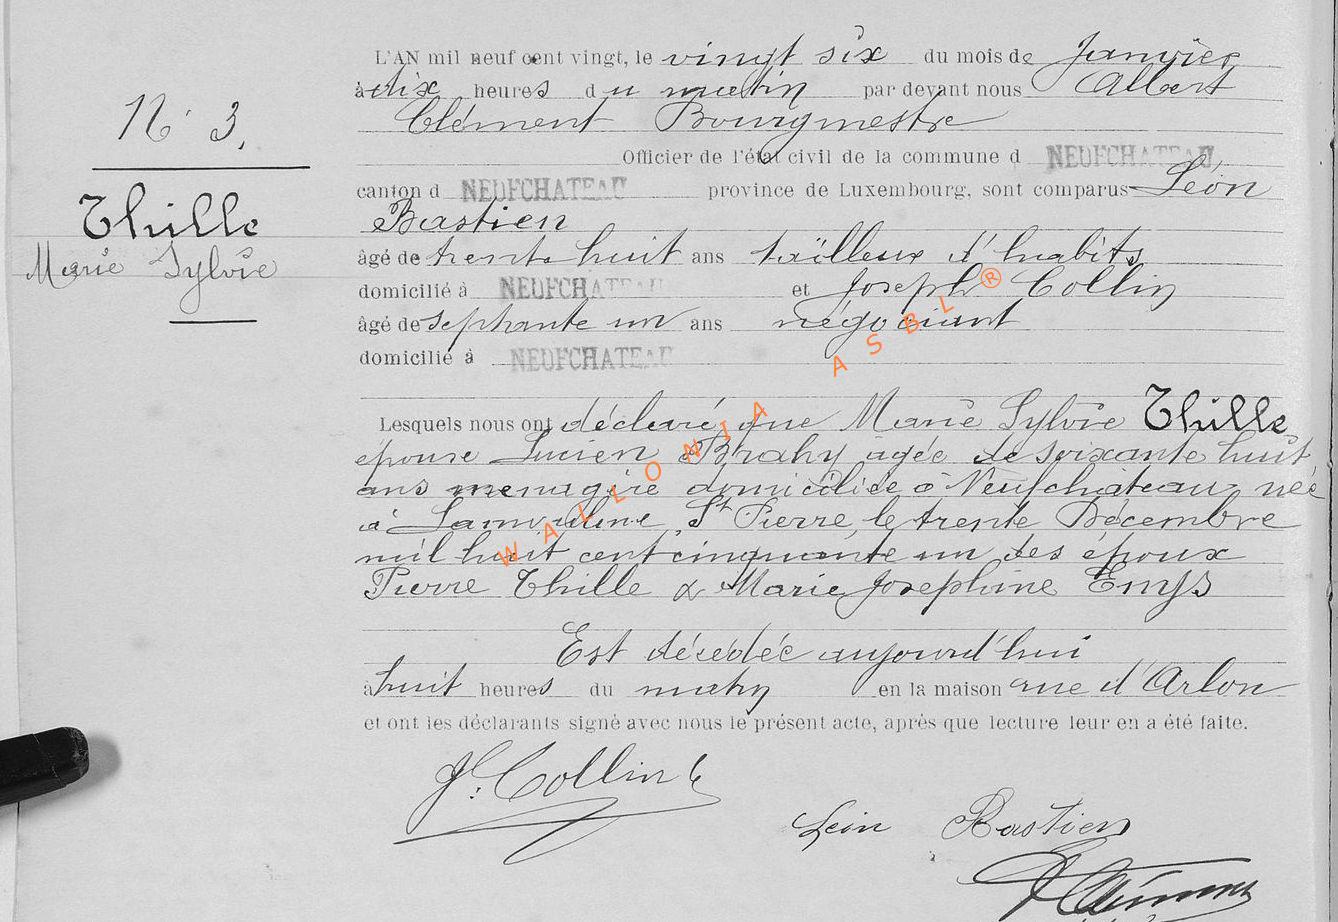 N° 3.
Thille
Marie Sylvie
L'AN mil neuf cent vingt, le vingt six du mois de Janvier
à dix heures du matin par devant nous Albert
Clément Bourgmestre
Officier de l'état civil de la commune d NEUFCHATEAU
canton d NEUFCHATEAU province de Luxembourg, sont comparus Léon
Bastien
âgé de trente huit ans tailleur d'habits
domicilié à NEUFCHATEAU et Joseph Collin
âgé de septante un ans négociant
domicilié à NEUFCHATEAU
Lesquels nous ont déclaré que Marie Sylvie Thille
épouse Lucien Brahy âgée de soixante huit
ans menagère domiciliée à Neufchateau née
à St Pierre le trente Décembre
mil huit cent cinquante un des époux
Pierre Thille & Marie Josephine Emys
Est décédée aujourd'hui
à huit heures du matin en la maison rue d'Arlon
et ont les déclarants signé avec nous le présent acte, après que lecture leur en a été faite.
J. Collin
Léon Bastien
WALLONIA ASBL ®